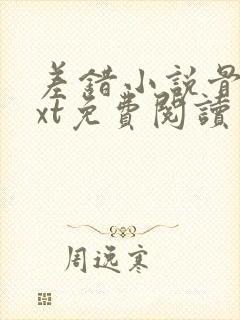 差錯小說骨
xt免費閱讀
周逸寒